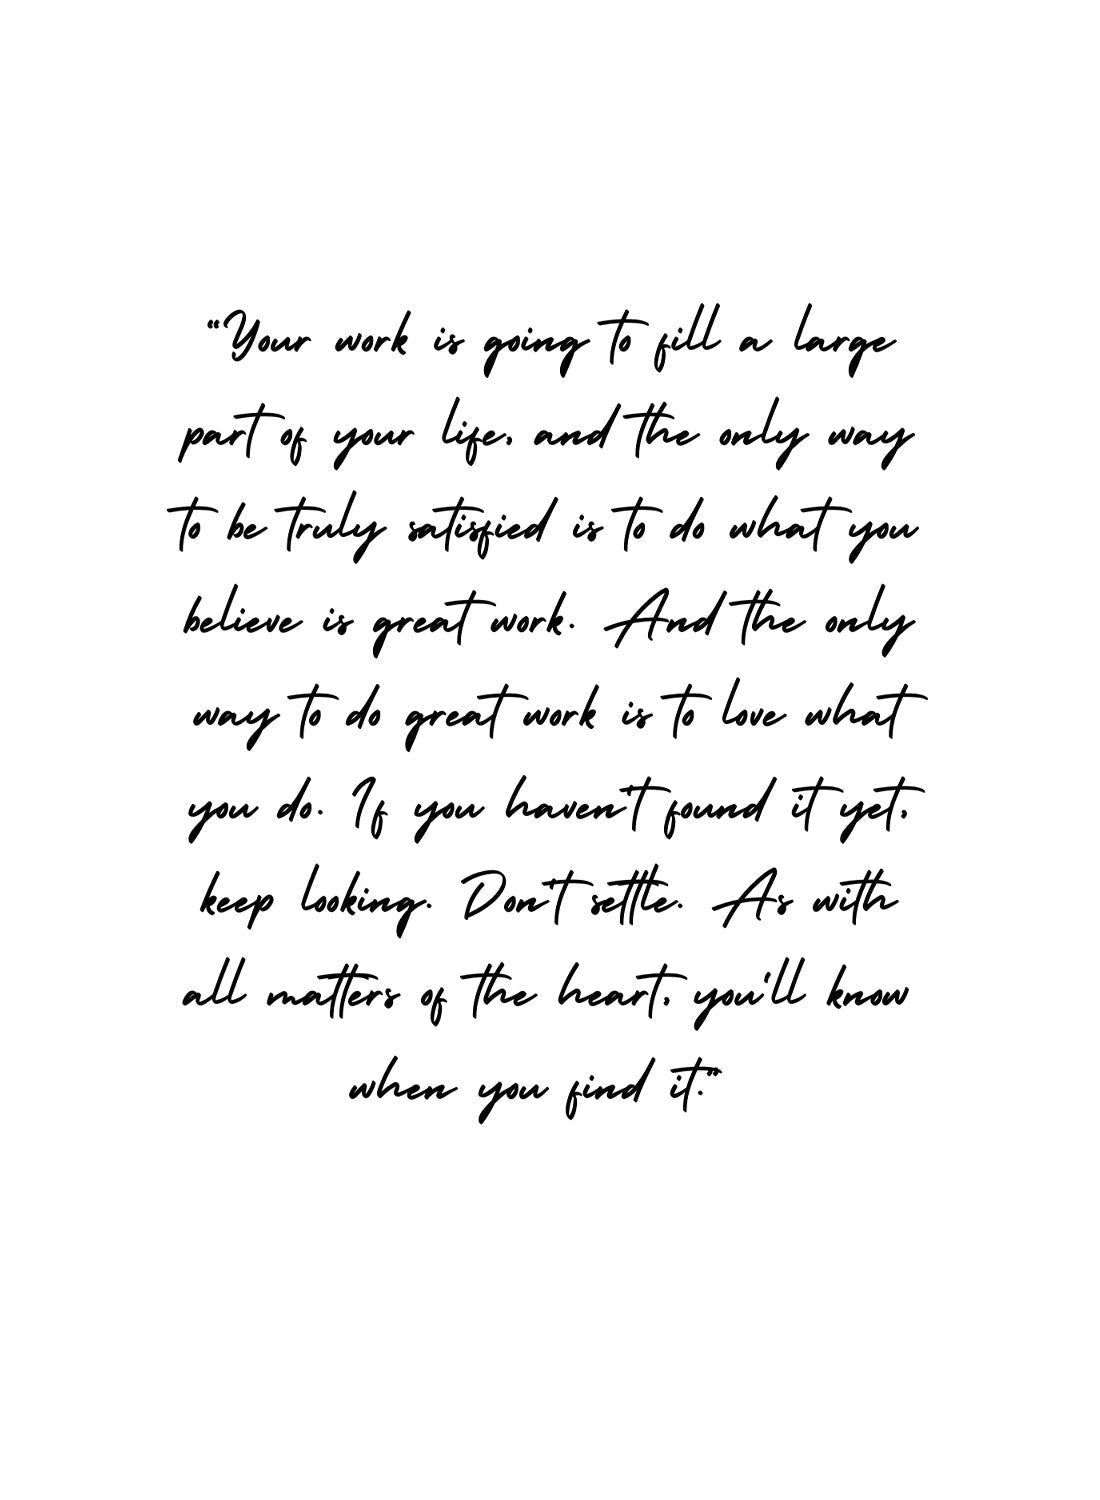 “Your work is going to fill a large
part of your life, and the only way
to be truly satisfied is to do what you
believe is great work. And the only
way to do great work is to love what
you do. If you haven't found it yet,
keep looking. Don't settle. As with
all matters of the heart, you'll know
when you find it.”